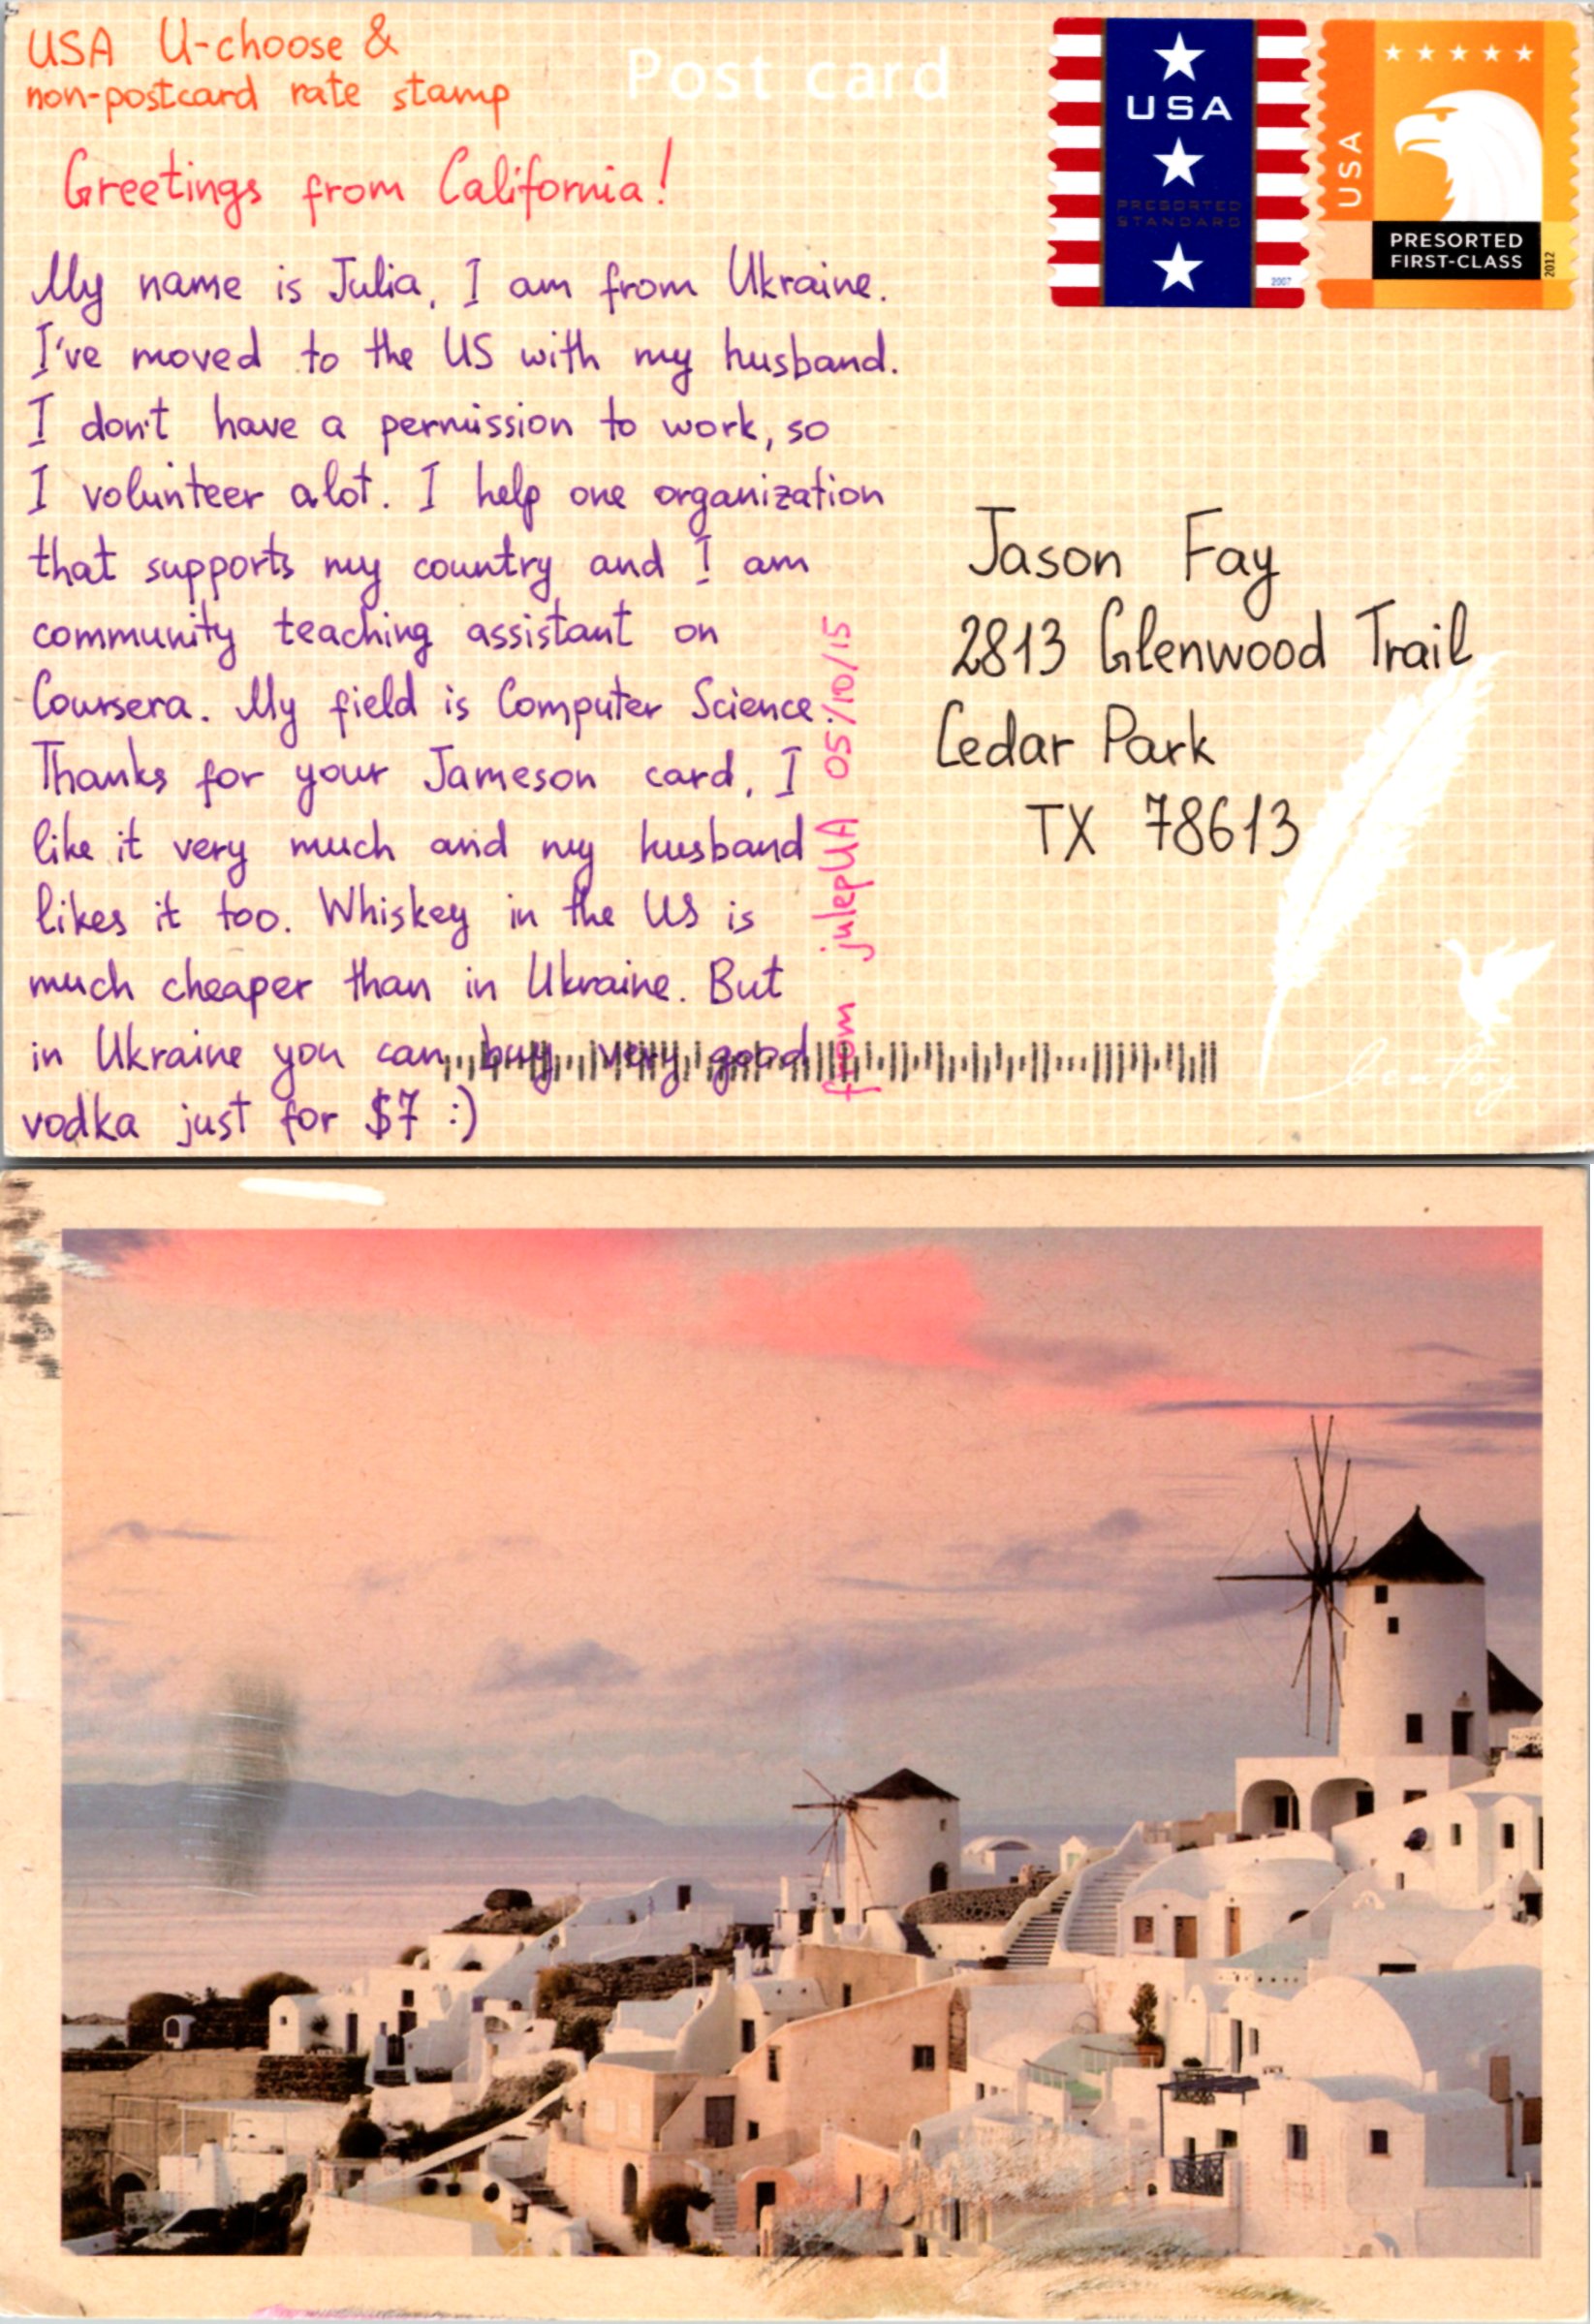 USA U-choose &
non-postcard rate stamp
Post card
Greetings from California!
My name is Julia, I am from Ukraine.
I've moved to the US with my husband.
I don't have a permission to work, so
I volunteer alot. I help one organization
that supports my country and I am
community teaching assistant on
Coursera. My field is Computer Science.
Thanks for your Jameson card, I
like it very much and my husband
likes it too. Whiskey in the US is
much cheaper than in Ukraine. But
in Ukraine you can buy very good
vodka just for $7 :)
from julepUA 05/10/15
USA
PRESORTED
STANDARD
2007
USA
PRESORTED
FIRST-CLASS
2012
Jason Fay
2813 Glenwood Trail
Cedar Park
TX 78613